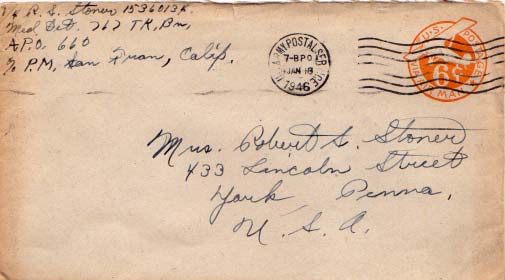 T/4 R. S. Stoner 15360131.
Med. Det. 767 TK. Bn.
A.P.O. 660
% P.M. San Fran, Calif.
U.S. ARMY POSTAL SERVICE
7-8 PO
JAN 18
1946
U.S. POSTAGE
6¢
AIR MAIL
Mrs. Robert S. Stoner
433 Lincoln Street
York Penna,
U. S. A.